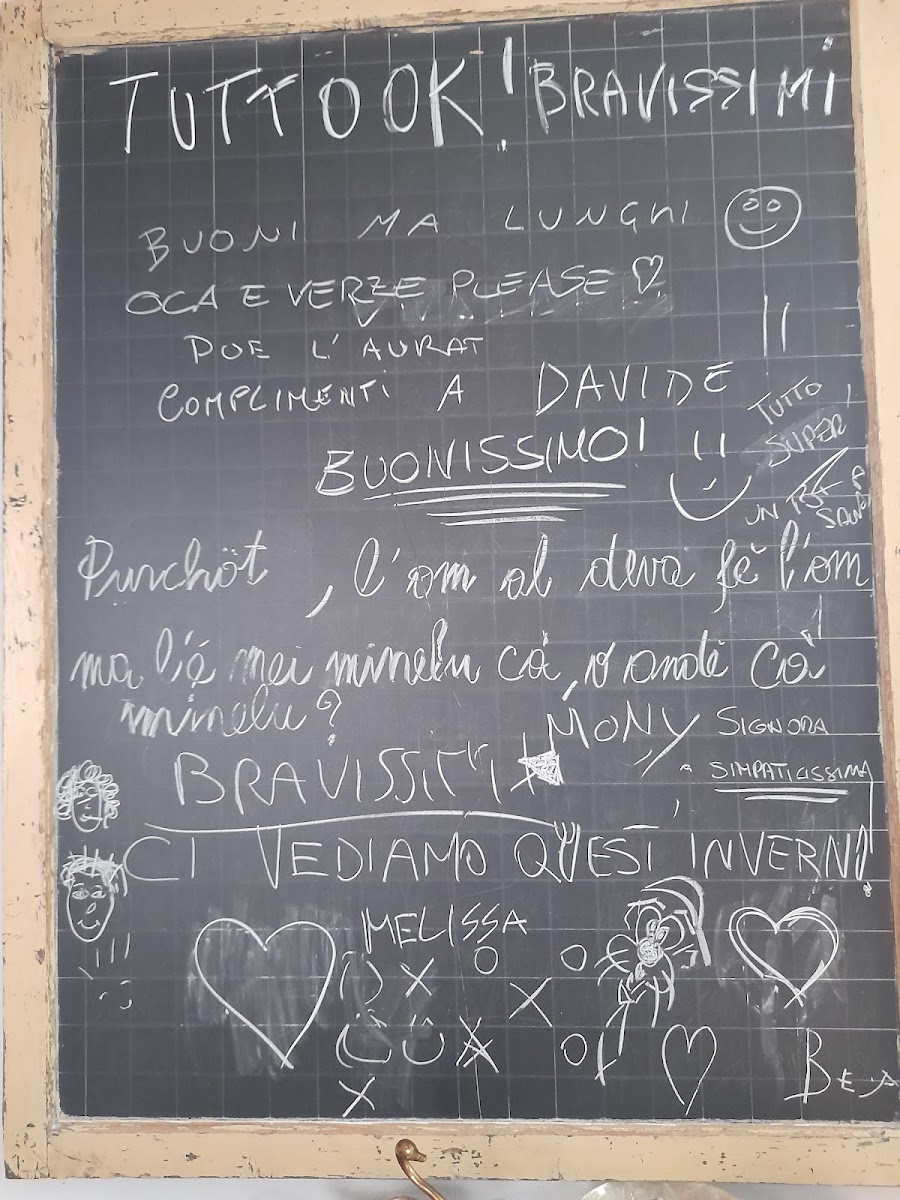 TUTTO OK! BRAVISSIMI
BUONI MA LUNGHI
OCA E VERZE PLEASE
DUE L'AURAT
COMPLIMENTI A DAVIDE
BUONISSIMO!
TUTTO
SUPER
UN
Purchöt, l'om al deva fè l'om
ma l'é mei minelu cà, o andè cà
minelu?
MONY SIGNORA
SIMPATICISSIMA
BRAVISSIMI
CI VEDIAMO QUEST'INVERNO!
MELISSA
BEA